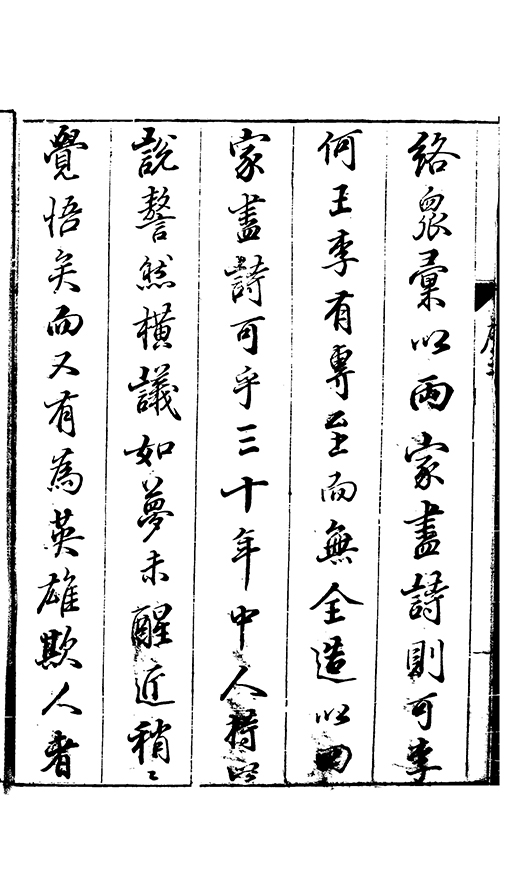 絡衆彙以兩家盡詩則可李
何王李有專至而無全造以四
家盡詩可乎三十年中人持此
說謷然橫議如夢未醒近稍〻
覺悟矣而又有為英雄欺人者